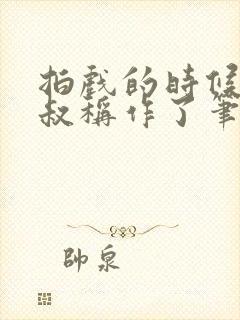 拍戲的時候
叔稱作了筆
帥泉